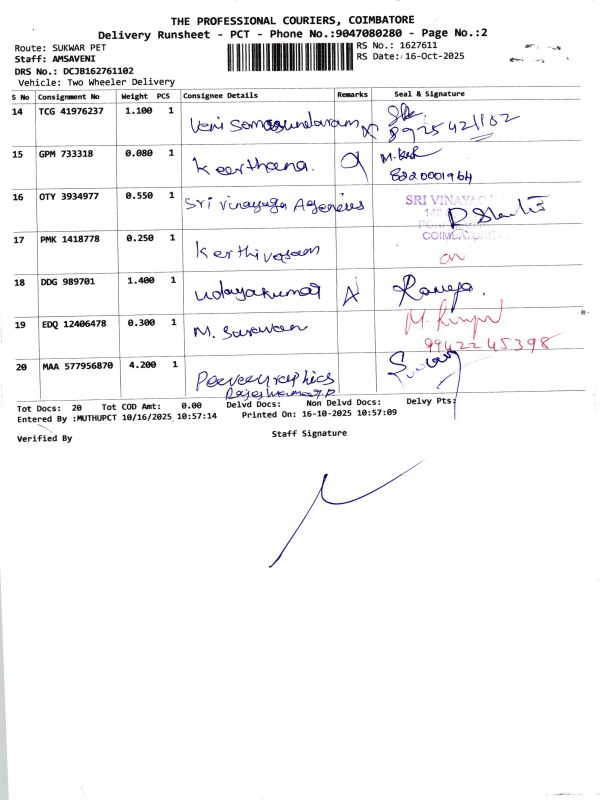 THE PROFESSIONAL COURIERS, COIMBATORE
Delivery Runsheet - PCT - Phone No.:9047080280 - Page No.:2
Route: SUKWAR PET
RS No.: 1627611
Staff: AMSAVENI
RS Date: 16-Oct-2025
DRS No.: DCJB162761102
Vehicle: Two Wheeler Delivery
S No Consignment No Weight PCS Consignee Details Remarks Seal & Signature
14 TCG 41976237 1.100 1 Veni Somasundaram
15 GPM 733318 0.080 1 Keerthana.
8220001964
16 OTY 3934977 0.550 1 Sri Vinayaga Agencies SRI VINAYAG
COIMBATORE
17 PMK 1418778 0.250 1 Kerthivasan
18 DDG 989701 1.400 1 Udayakumar
19 EDQ 12406478 0.300 1 M. Saravanan
99422 45398
20 MAA 577956870 4.200 1
Rajeshkumar.P
Tot Docs: 20 Tot COD Amt: 0.00 Delvd Docs: Non Delvd Docs: Delvy Pts:
Entered By :MUTHUPCT 10/16/2025 10:57:14 Printed On: 16-10-2025 10:57:09
Verified By Staff Signature